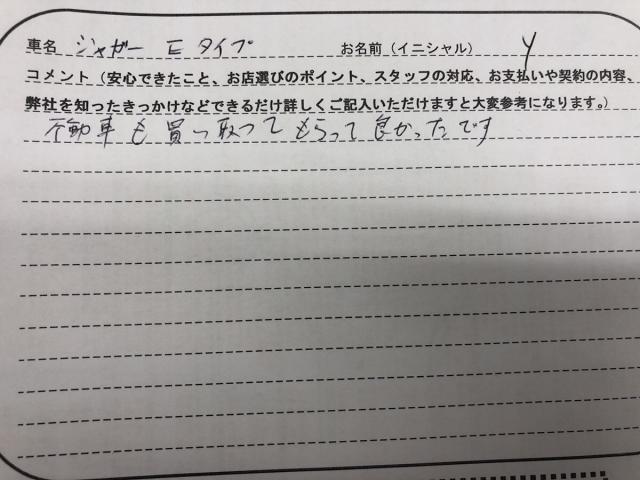 車名 ジャガー Eタイプ お名前（イニシャル） Y
コメント（安心できたこと、お店選びのポイント、スタッフの対応、お支払いや契約の内容、
弊社を知ったきっかけなどできるだけ詳しくご記入いただけますと大変参考になります。）
不動車も買っ取ってもらって良かったです